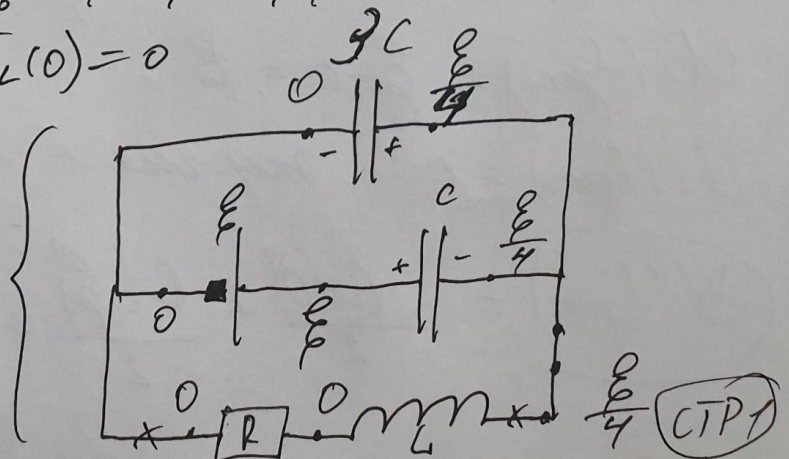 L(0) = 0
3C
0
ℰ/4
-
+
ℰ
C
ℰ/4
+
-
0
ℰ
0
0
R
L
ℰ/4
СТР1